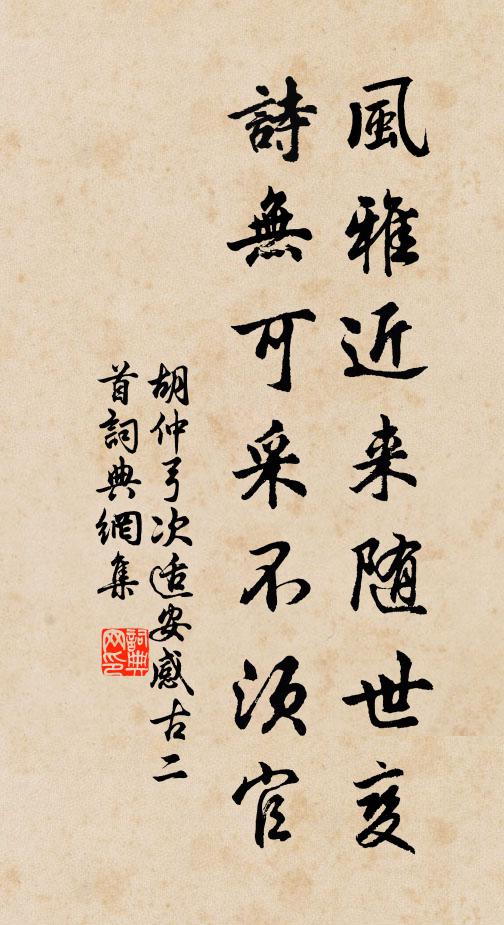 風雅近来随世变
詩無可采不须官
胡仲弓次适安感古二
首詞典網集
詞典网印